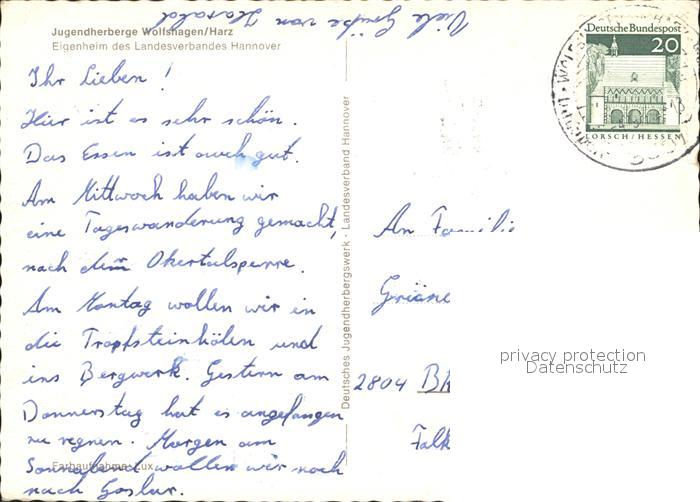 Viele Grüße von Harald
Jugendherberge Wolfshagen/Harz
Eigenheim des Landesverbandes Hannover
Ihr Lieben!
Hier ist es sehr schön.
Das Essen ist auch gut.
Am Mittwoch haben wir
eine Tageswanderung gemacht,
nach dem Okertalsperre.
Am Montag wollen wir in
die Tropfsteinhölen und
ins Bergwerk. Gestern am
Donnerstag hat es angefangen
zu regnen. Morgen am
Sonnabend wollen wir noch
nach Goslar.
Farbaufnahme: Lux
Deutsches Jugendherbergswerk - Landesverband Hannover
Deutsche Bundespost
20
LORSCH/HESSEN
An Familie
2804
Falk
privacy protection
Datenschutz